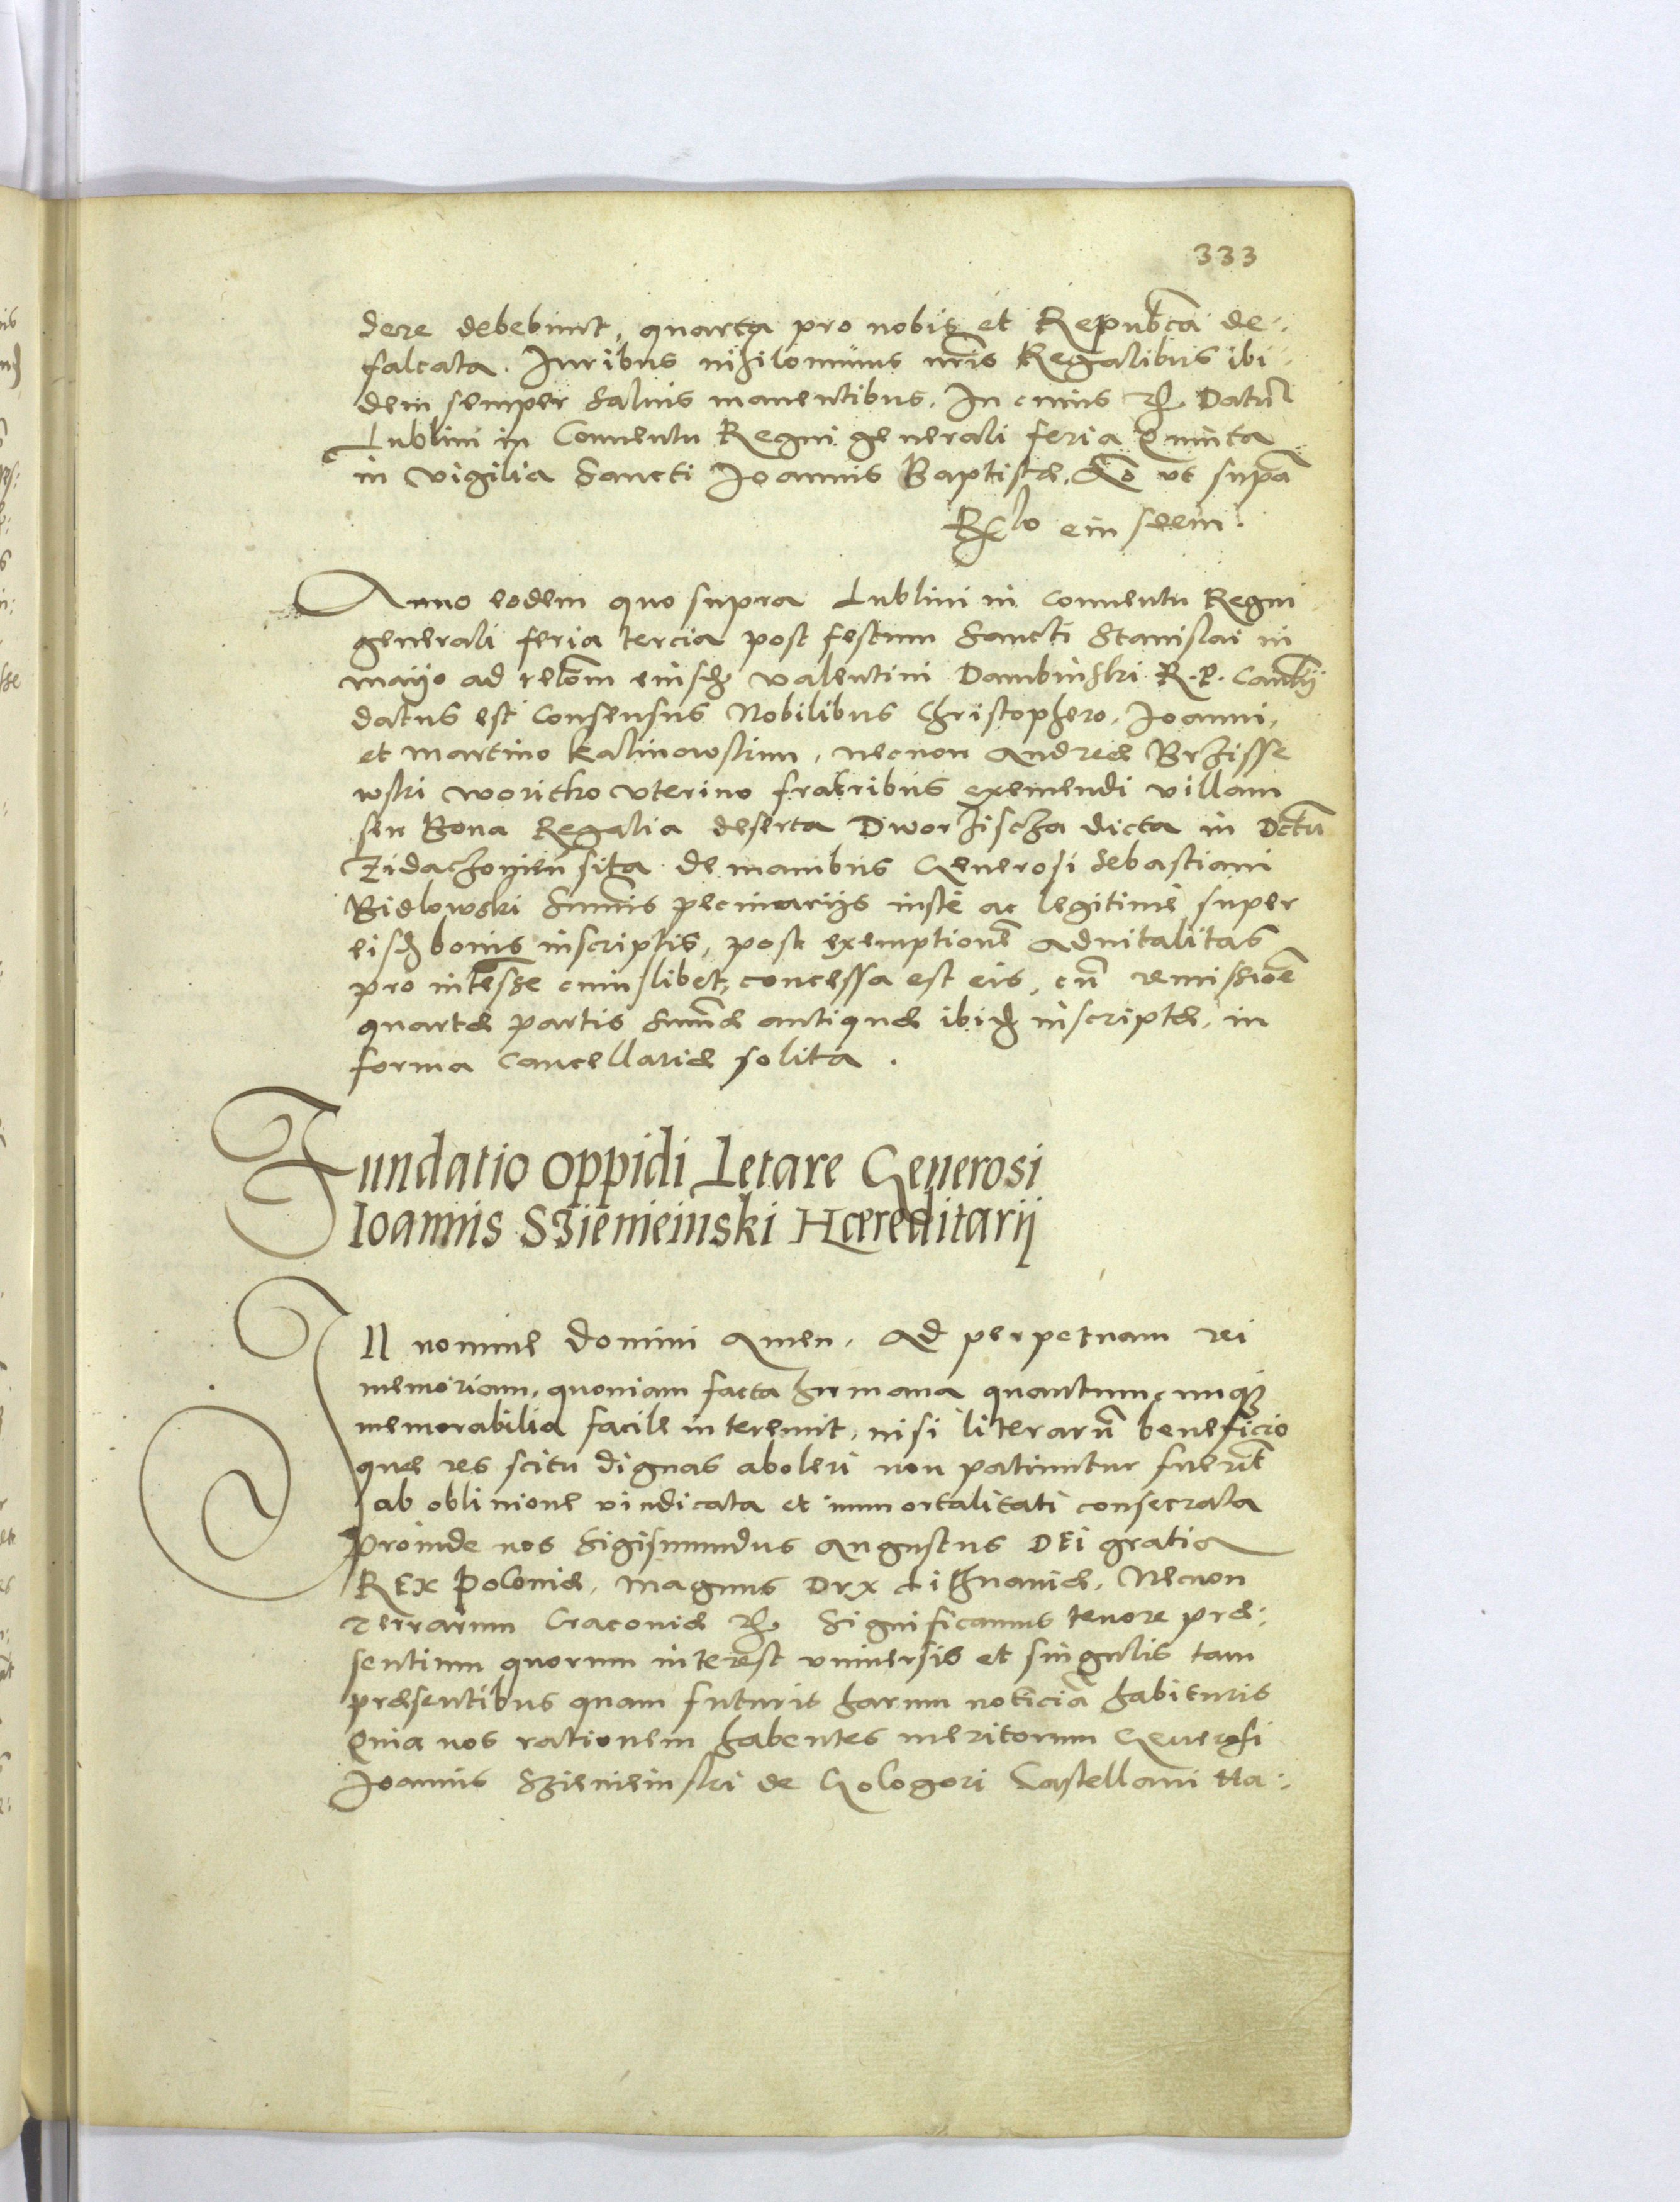 333
dere debebunt, quarta pro nobis et Republca de:
falcata. Iuribus nihilominus nris Regalibus ibi
dem semper saluis manentibus. In cuius rei Datu
Lublini in Conuentu Regni generali feria Quinta
in vigilia Sancti Joannis Baptistæ. Ao vt supa
Rlo eiusdem.
Anno eodem quo supra Lublini in conuentu Regni
generali feria tercia post festum Sancti Stanislai in
mayo ad relom eiusdem Valentini Dambinski R. P. Cancellarij
datus est Consensus Nobilibus Christophero, Joanni,
et Martino Kalinowskim, necnon Andreæ Brzisse
wski woritko vterino fratribus exemendi villam
seu Bona Regalia deserta Dworzischa dicta in Dctu
Zidachouien sita de manibus Generosi Sebastiani
Bidlowski Summis pecuniarijs iuste ac legitime super
eisdem bonis inscriptis, post exemptione aduitalitas
pro intesse cuiuslibet, concessa est eis, cu remissioe
quartæ partis Summæ antiquæ ibidem inscriptæ, in
forma Cancellariæ solita.
Fundatio oppidi Letare Generosi
Ioannis Szienieinski Hæreditarij
IN nomine Domini Amen. Ad perpetuam rei
memoriam, quoniam facta humana quantumcunque
memorabilia facile intereunt, nisi literaru beneficio
quæ res scitu dignas aboleri non patiuntur fuerit
ab obliuione vindicata et immortalitati consecrata
Proinde nos Sigismundus Augustus DEI gratia
REX Poloniæ, Magnus Dux Lithuaniæ, Necnon
Terrarum Cracouiæ Significamus tenore præ:
sentium quorum interest vniuersis et singulis tam
præsentibus quam futuris harum noticia habituris
Quia nos rationem habentes meritorum Generosi
Joannis Szienieinski de Gologori Castellani Ha: